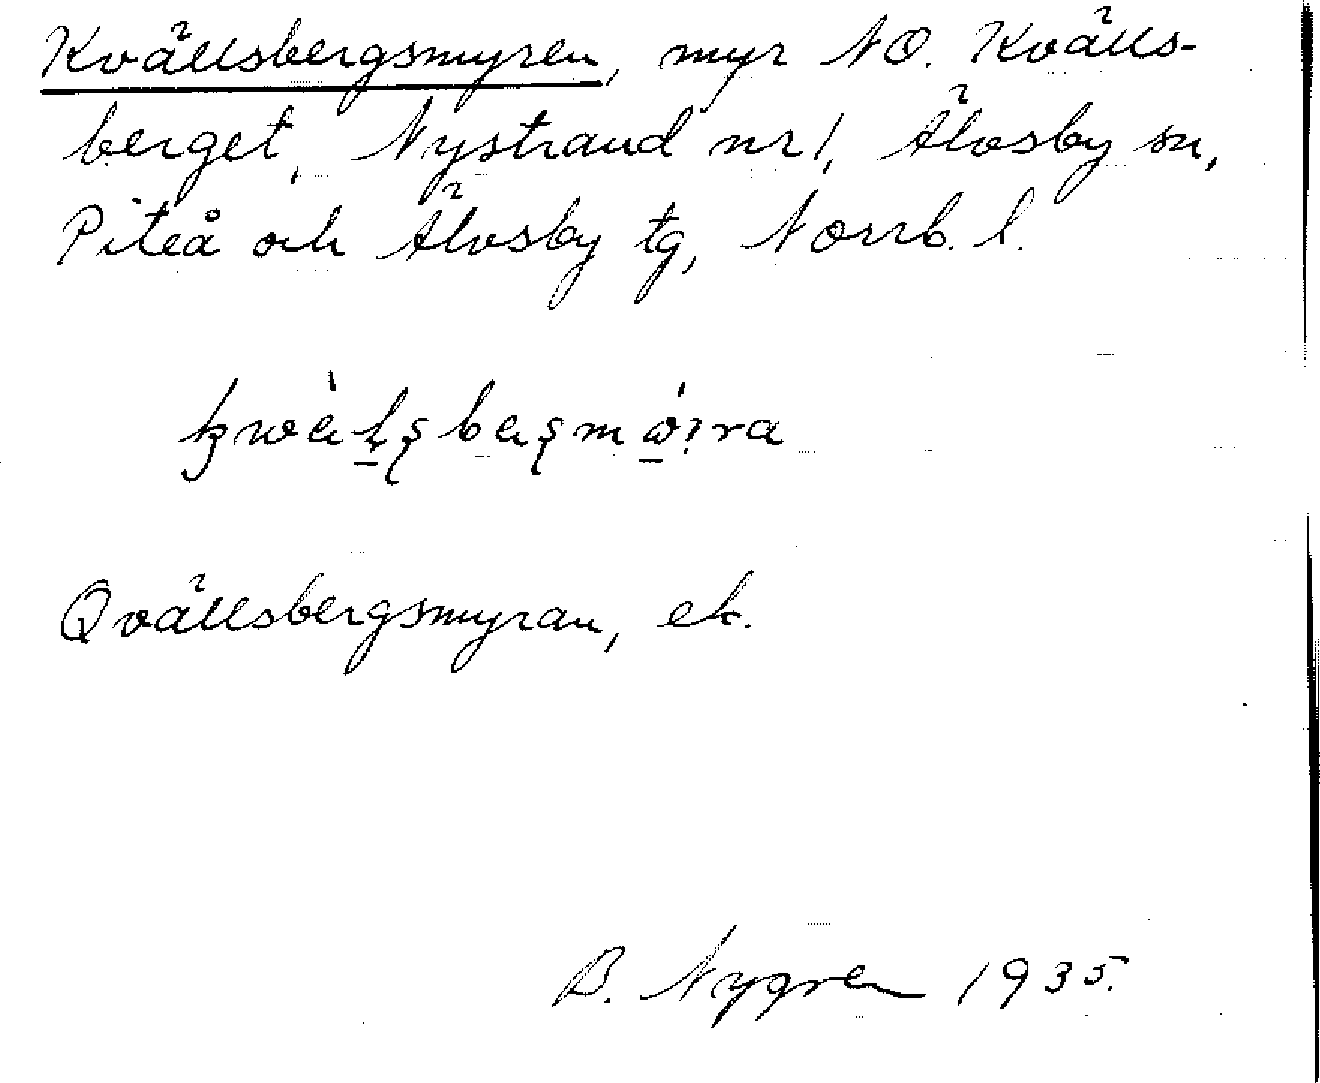 Kvällsbergsmyren, myr NO. Kvälls-
berget, Nystrand nr 1, Älvsby sn,
Piteå och Älvsby tg, Norrb. l.
Qvällsbergsmyran, ek.
B. Nygren 1935.